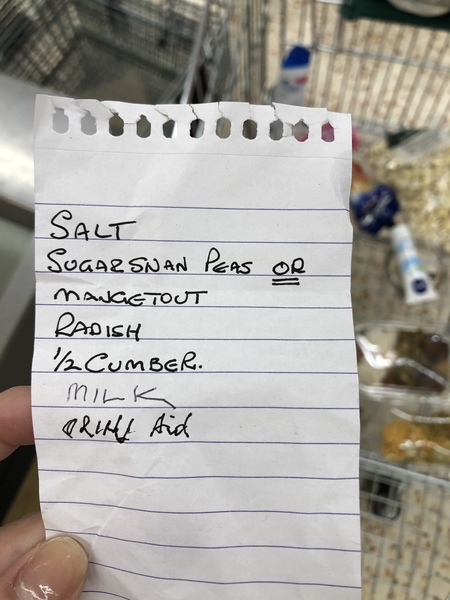 SALT
SUGARSNAN PEAS OR
MANGETOUT
RADISH
1/2 CUMBER.
MILK
Aid